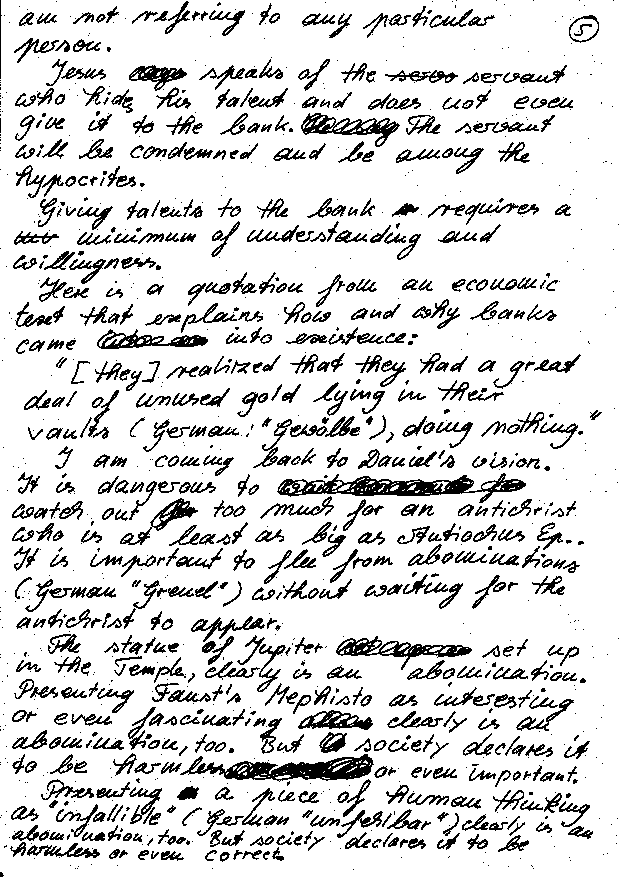 am not referring to any particular
person.
5
Jesus speaks of the servo servant
who hides his talent and does not even
give it to the bank. The servant
will be condemned and be among the
hypocrites.
Giving talents to the bank requires a
minimum of understanding and
willingness.
Here is a quotation from an economic
text that explains how and why banks
came into existence:
"[they] realized that they had a great
deal of unused gold lying in their
vaults (German: "Gewölbe"), doing nothing."
I am coming back to Daniel's vision.
It is dangerous to
watch out too much for an antichrist
who is at least as big as Antiochus Ep..
It is important to flee from abominations
(German "Greuel") without waiting for the
antichrist to appear.
The statue of Jupiter set up
in the Temple, clearly is an abomination.
Presenting Faust's Mephisto as interesting
or even fascinating clearly is an
abomination, too. But society declares it
to be harmless or even important.
Presenting a piece of human thinking
as "infallible" (German "unfehlbar") clearly is an
abomination, too. But society declares it to be
harmless or even correct.